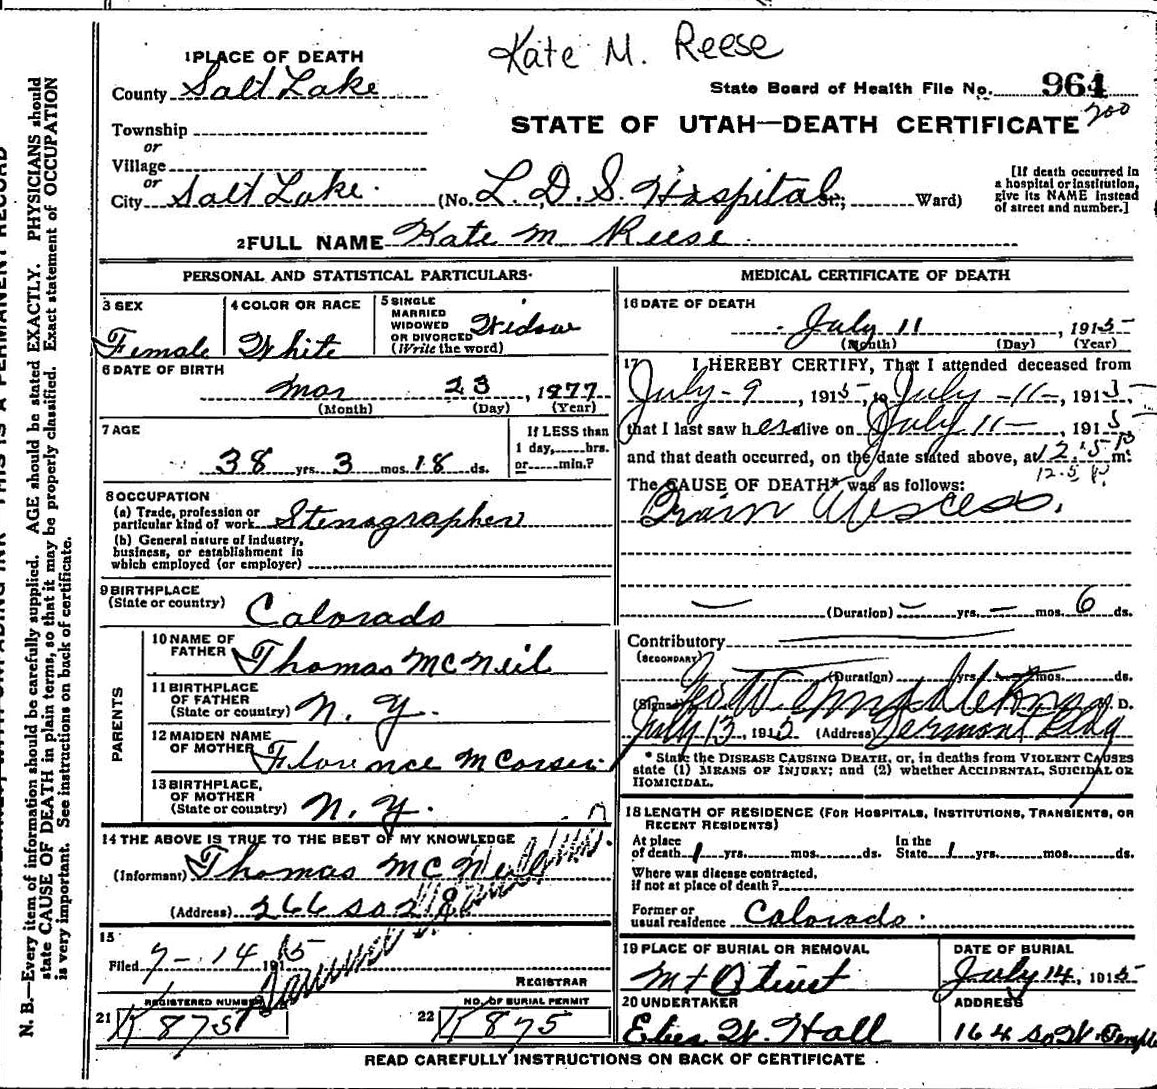 Kate M. Reese
1 PLACE OF DEATH
County Salt Lake
State Board of Health File No. 964
200
Township
or
Village
or
City Salt Lake
STATE OF UTAH—DEATH CERTIFICATE
(No. L. D. S. Hospital St; Ward)
[If death occurred in
a hospital or institution,
give its NAME instead
of street and number.]
2 FULL NAME Kate M Reese
PERSONAL AND STATISTICAL PARTICULARS
3 SEX
Female
4 COLOR OR RACE
White
5 SINGLE
MARRIED
WIDOWED
OR DIVORCED
(Write the word)
Widow
6 DATE OF BIRTH
Mar 23, 1877
(Month) (Day) (Year)
7 AGE
38 yrs. 3 mos. 18 ds.
If LESS than
1 day, hrs.
or min.?
8 OCCUPATION
(a) Trade, profession or
particular kind of work Stenographer
(b) General nature of industry,
business, or establishment in
which employed (or employer)
9 BIRTHPLACE
(State or country)
Colorado
PARENTS
10 NAME OF
FATHER
Thomas McNeil
11 BIRTHPLACE
OF FATHER
(State or country)
N. Y.
12 MAIDEN NAME
OF MOTHER
Florence
13 BIRTHPLACE,
OF MOTHER
(State or country)
N. Y.
14 THE ABOVE IS TRUE TO THE BEST OF MY KNOWLEDGE
(Informant) Thomas McNeil
(Address) 266 So 2
15
Filed 7-14 1915
REGISTRAR
REGISTERED NUMBER
21 K 875
NO. OF BURIAL PERMIT
22 K 875
MEDICAL CERTIFICATE OF DEATH
16 DATE OF DEATH
July 11, 1915
(Month) (Day) (Year)
17 I HEREBY CERTIFY, That I attended deceased from
July - 9 1915, to July - 11 -, 1915
that I last saw her alive on July 11 -, 1915
and that death occurred, on the date stated above, at 12.5 P m.
12.5 P.
The CAUSE OF DEATH* was as follows:
Brain Abscess.
(Duration) — yrs. — mos. 6 ds.
Contributory
(SECONDARY)
(Duration) yrs. mos. ds.
(Signed) Geo W Middleton M. D.
July 13, 1915 (Address) Vermont Bldg
* State the DISEASE CAUSING DEATH, or, in deaths from VIOLENT CAUSES
state (1) MEANS OF INJURY; and (2) whether ACCIDENTAL, SUICIDAL OR
HOMICIDAL.
18 LENGTH OF RESIDENCE (FOR HOSPITALS, INSTITUTIONS, TRANSIENTS, OR
RECENT RESIDENTS)
At place
of death 1 yrs. mos. ds.
In the
State 1 yrs. mos. ds.
Where was disease contracted,
if not at place of death?
Former or
usual residence Colorado.
19 PLACE OF BURIAL OR REMOVAL
Mt Olivet
DATE OF BURIAL
July 14, 1915
20 UNDERTAKER
Eber W. Hall
ADDRESS
164 So W. Temple
READ CAREFULLY INSTRUCTIONS ON BACK OF CERTIFICATE
THIS IS A PERMANENT RECORD
N. B.—Every item of information should be carefully supplied. AGE should be stated EXACTLY. PHYSICIANS should
state CAUSE OF DEATH in plain terms, so that it may be properly classified. Exact statement of OCCUPATION
is very important. See instructions on back of certificate.